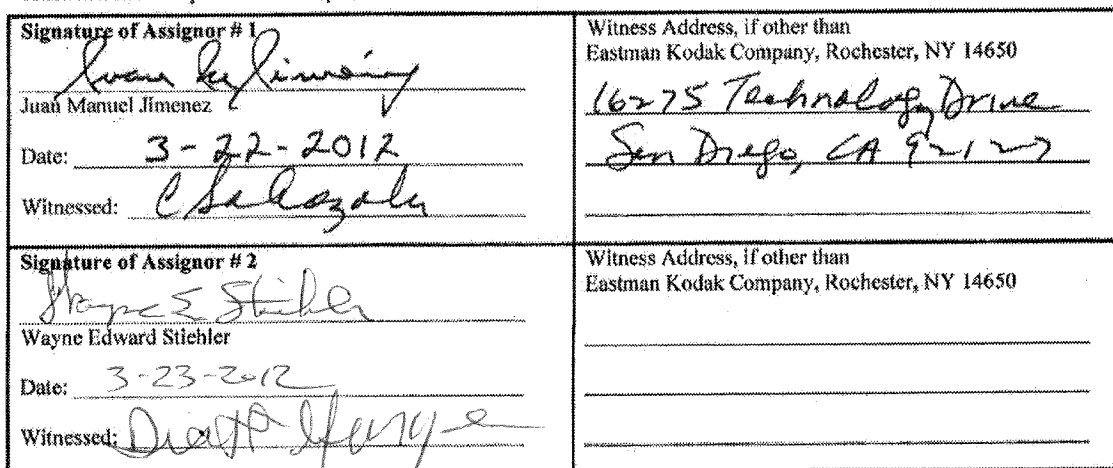 Signature of Assignor # 1
Juan Manuel Jimenez
Date: 3-22-2012
Witnessed:
Witness Address, if other than
Eastman Kodak Company, Rochester, NY 14650
16275 Technology Drive
San Diego, CA 92127
Signature of Assignor # 2
Wayne E Stiehler
Wayne Edward Stiehler
Date: 3-23-2012
Witnessed:
Witness Address, if other than
Eastman Kodak Company, Rochester, NY 14650